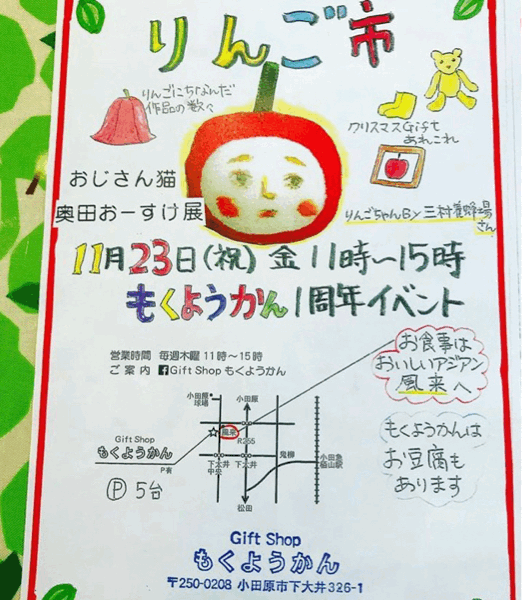 りんご市
りんごにちなんだ
作品の数々
クリスマスGiftも
あれこれ
おじさん猫
奥田おーすけ展
りんごちゃんBy三村養蜂場
さん
11月23日(祝)金11時〜15時
もくようかん1周年イベント
営業時間 毎週木曜 11時〜15時
ご案内 Gift Shop もくようかん
お食事は
おいしいアジアン
風来へ
小田原
球場
小田原
風来
R255
Gift Shop
もくようかん
P有
下大井
中央
下大井
鬼柳
小田急
栢山駅
松田
Ⓟ 5台
もくようかんは
お豆腐も
あります
Gift Shop
もくようかん
〒250-0208 小田原市下大井326-1